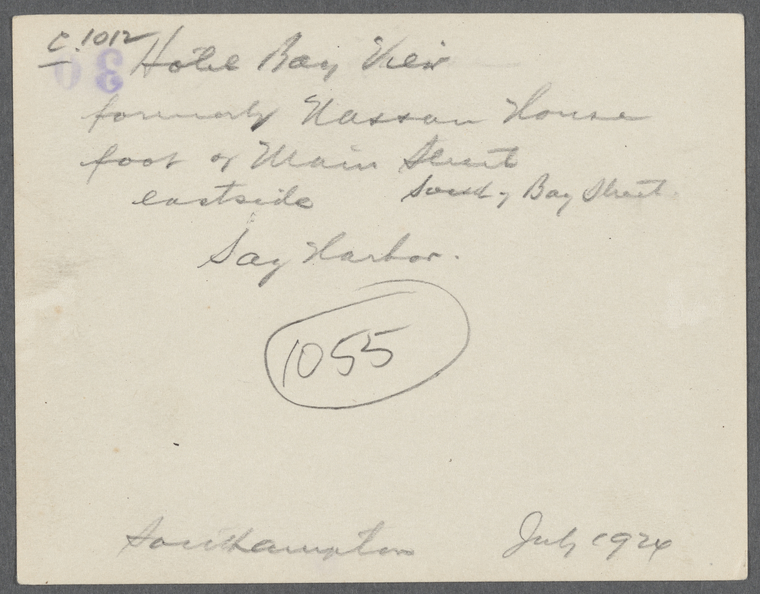 C.1012
30
Hotel Bay View
formerly Nassau House
foot of Main Street
eastside South of Bay Street.
Sag Harbor.
1055
Southampton July 1924